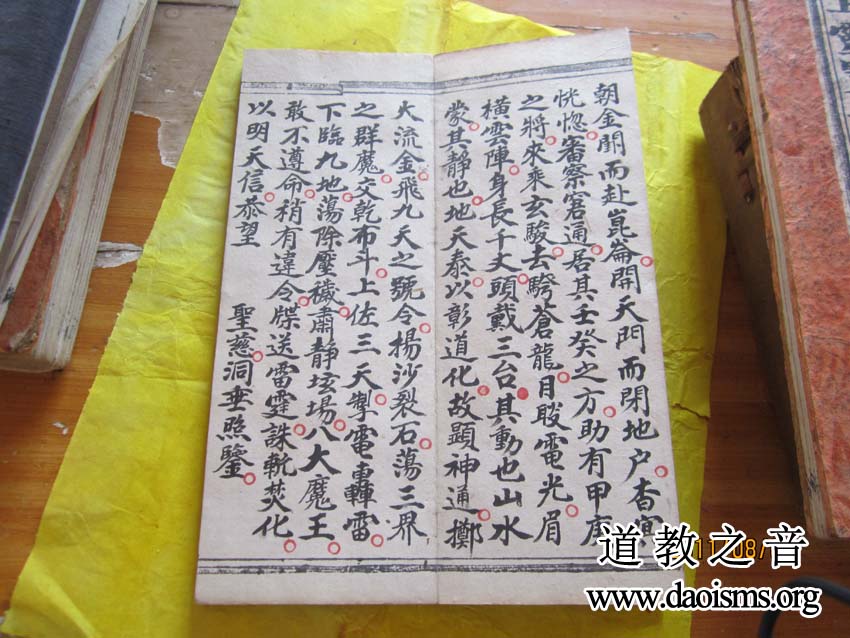 朝金闕而赴崑崙開天門而閉地户杳冥
恍惚審察窘通居其壬癸之方助有甲庚
之將來乘玄駿去騎蒼龍目睃電光眉
橫雲陣身長千丈頭戴三台其動也山水
蒙其靜也地天泰以彰道化故顯神通擲
大流金飛九天之號令楊沙裂石蕩三界
之群魔交乾布斗上佐三天掣電轟雷
下臨九地蕩除壓穢肅静垓場八大魔王
敢不遵命稍有違令牒送雷霆誅斬焚化
以明天信恭望
聖慈洞垂照鑒
道教之音
www.daoisms.org